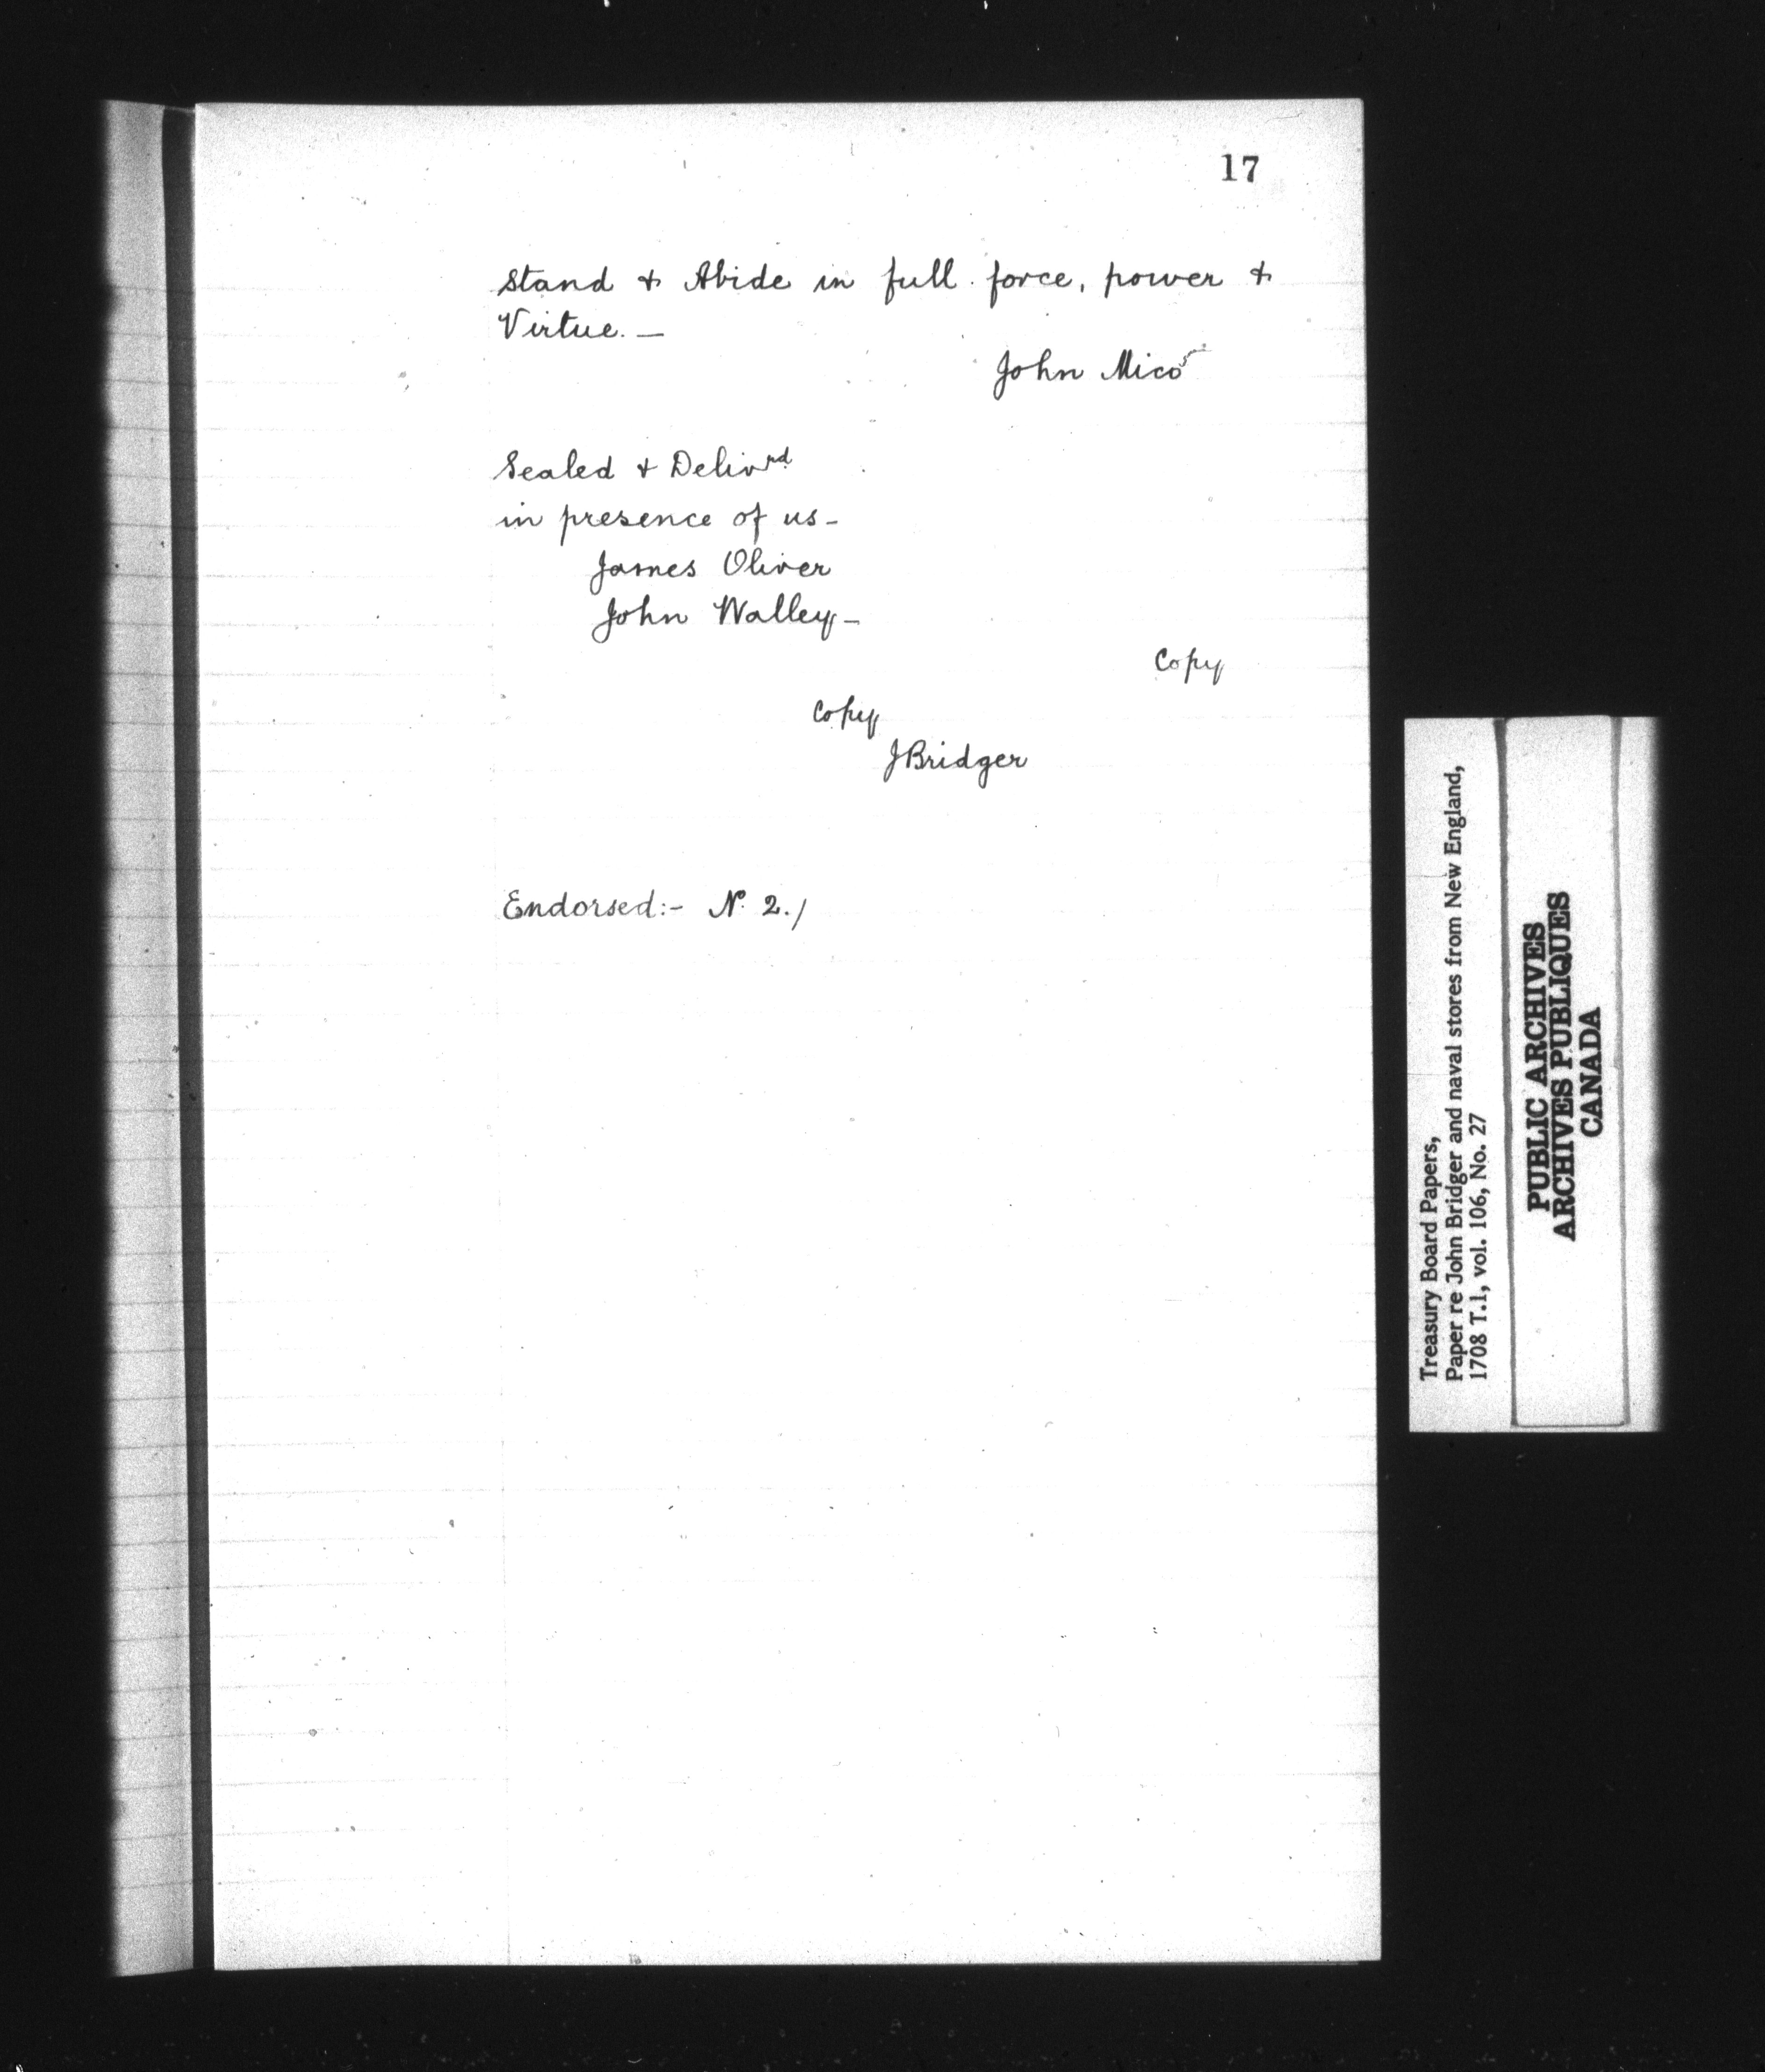 17
Stand & Abide in full force, power &
Virtue. —
John Mico
Sealed & Delivrd
in presence of us-
James Oliver
John Walley-
Copy
Copy
JBridger
Endorsed:- N. 2./
Treasury Board Papers,
Paper re John Bridger and naval stores from New England,
1708 T.1, vol. 106, No. 27
PUBLIC ARCHIVES
ARCHIVES PUBLIQUES
CANADA